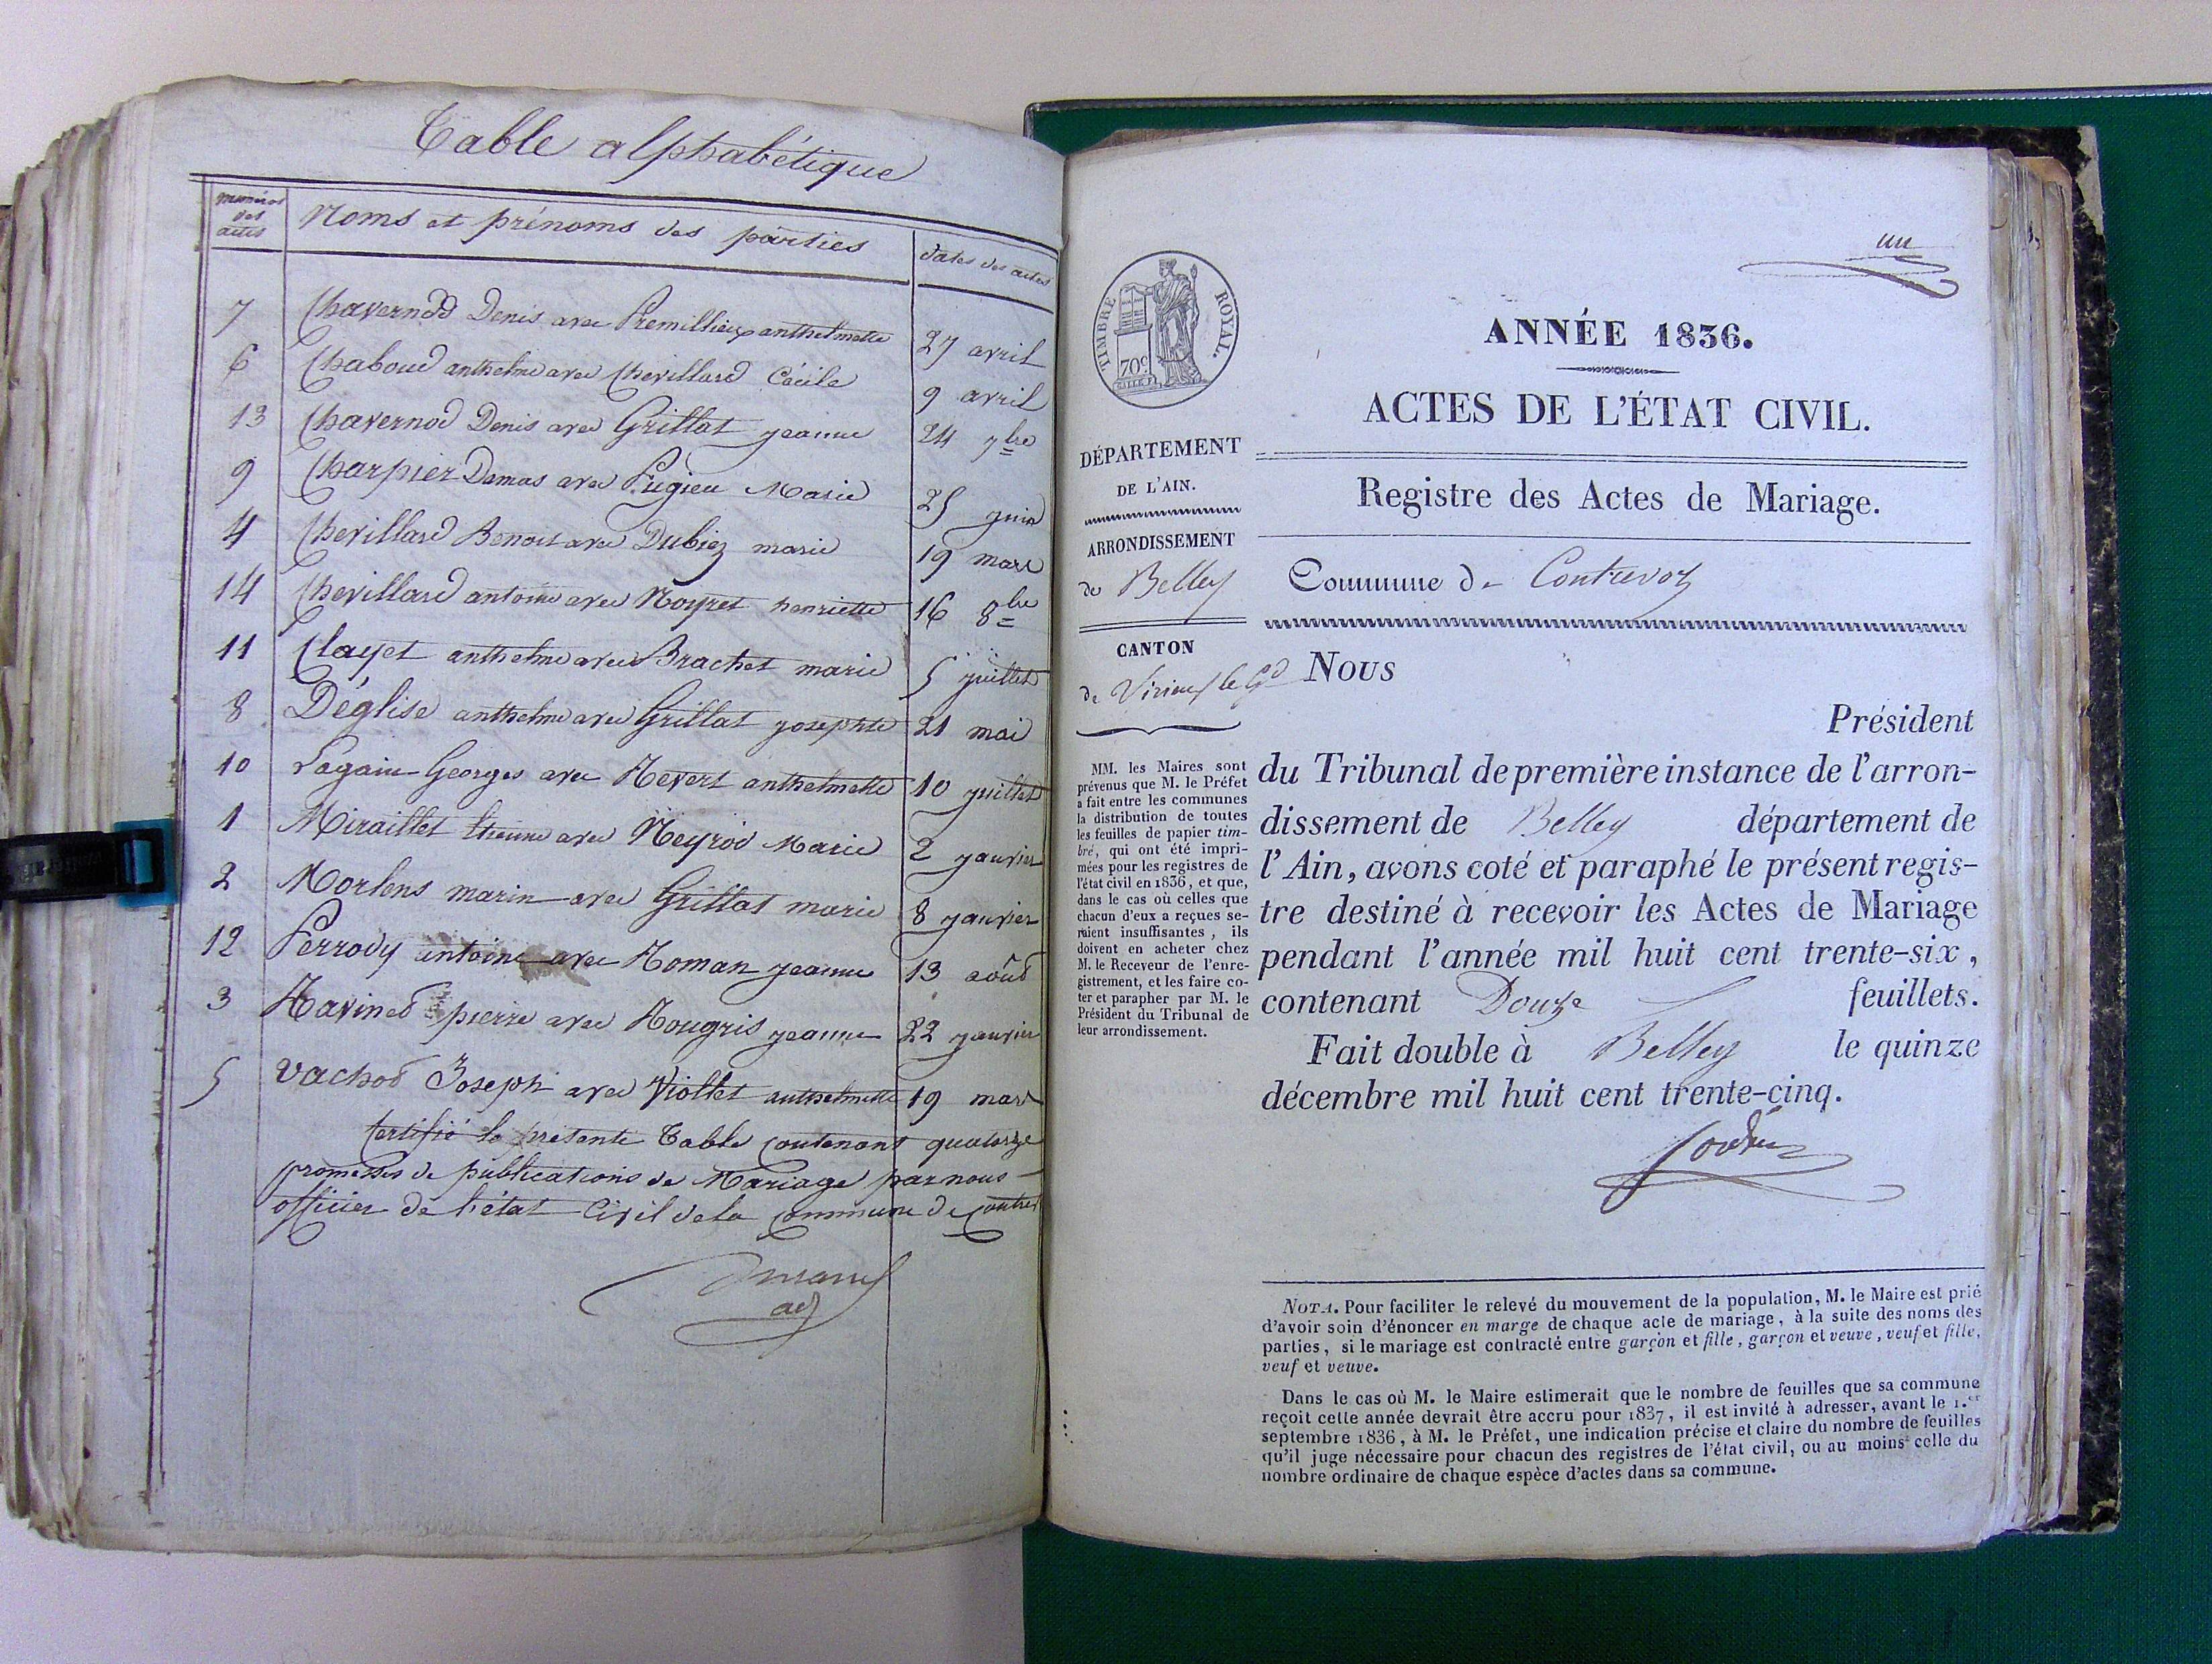 Table alphabétique
numéros des actes
Noms et prénoms des parties
dates des actes
7 Chavernod Denis avec Premillieux anthelmette 27 avril
6 Chaboud anthelme avec Chevillard Cécile 9 avril
13 Chavernod Denis avec Grillat jeanne 24 7bre
9 Charpier Damas avec Pugieu Marie 25 juin
4 Chevillard Benoit avec Dubiez marie 19 mars
14 Chevillard antoine avec Noyret henriette 16 8bre
11 Clayet anthelme avec Brachet marie 5 juillet
8 Déglise anthelme avec Grillat josephte 21 mai
10 Lagain Georges avec Revert anthelmette 10 juillet
1 Miraillet Etienne avec Neyrod Marie 2 janvier
2 Morlens marin avec Grillat marie 8 janvier
12 Perrody antoine avec Roman jeanne 13 août
3 Ravined pierre avec Rougris jeanne 22 janvier
5 Vachod Joseph avec Viollet anthelmette 19 mars
Certifié la présente Table contenant quatorze
promesses de publications de Mariage par nous
officier de l'état Civil de la commune de
adj
un
TIMBRE ROYAL.
70c
ANNÉE 1836.
ACTES DE L'ÉTAT CIVIL.
Registre des Actes de Mariage.
Commune de Contrevoz
DÉPARTEMENT
DE L'AIN.
ARRONDISSEMENT
de Belley
CANTON
de Virieux le Gd
MM. les Maires sont
prévenus que M. le Préfet
a fait entre les communes
la distribution de toutes
les feuilles de papier tim-
bré, qui ont été impri-
mées pour les registres de
l'état civil en 1836, et que,
dans le cas où celles que
chacun d'eux a reçues se-
raient insuffisantes, ils
doivent en acheter chez
M. le Receveur de l'enre-
gistrement, et les faire co-
ter et parapher par M. le
Président du Tribunal de
leur arrondissement.
Nous
Président
du Tribunal de première instance de l'arron-
dissement de Belley département de
l'Ain, avons coté et paraphé le présent regis-
tre destiné à recevoir les Actes de Mariage
pendant l'année mil huit cent trente-six,
contenant Douze feuillets.
Fait double à Belley le quinze
décembre mil huit cent trente-cinq.
NOTA. Pour faciliter le relevé du mouvement de la population, M. le Maire est prié
d'avoir soin d'énoncer en marge de chaque acte de mariage, à la suite des noms des
parties, si le mariage est contracté entre garçon et fille, garçon et veuve, veuf et fille,
veuf et veuve.
Dans le cas où M. le Maire estimerait que le nombre de feuilles que sa commune
reçoit cette année devrait être accru pour 1837, il est invité à adresser, avant le 1.er
septembre 1836, à M. le Préfet, une indication précise et claire du nombre de feuilles
qu'il juge nécessaire pour chacun des registres de l'état civil, ou au moins celle du
nombre ordinaire de chaque espèce d'actes dans sa commune.